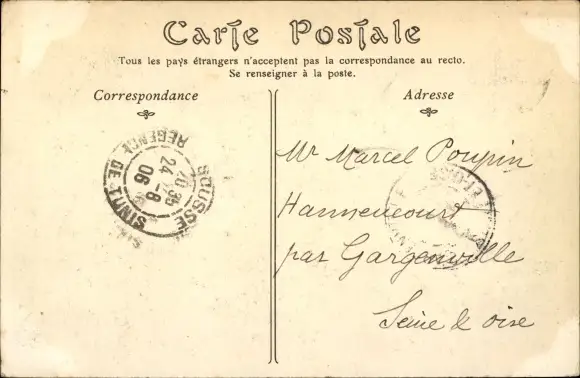 Carte Postale
Tous les pays étrangers n'acceptent pas la correspondance au recto.
Se renseigner à la poste.
Correspondance
Adresse
SOUSSE
20 35
24 -6
06
RÉGENCE DE TUNIS
Mr Marcel Poupin
Hannencourt
par Gargenville
Seine & oise